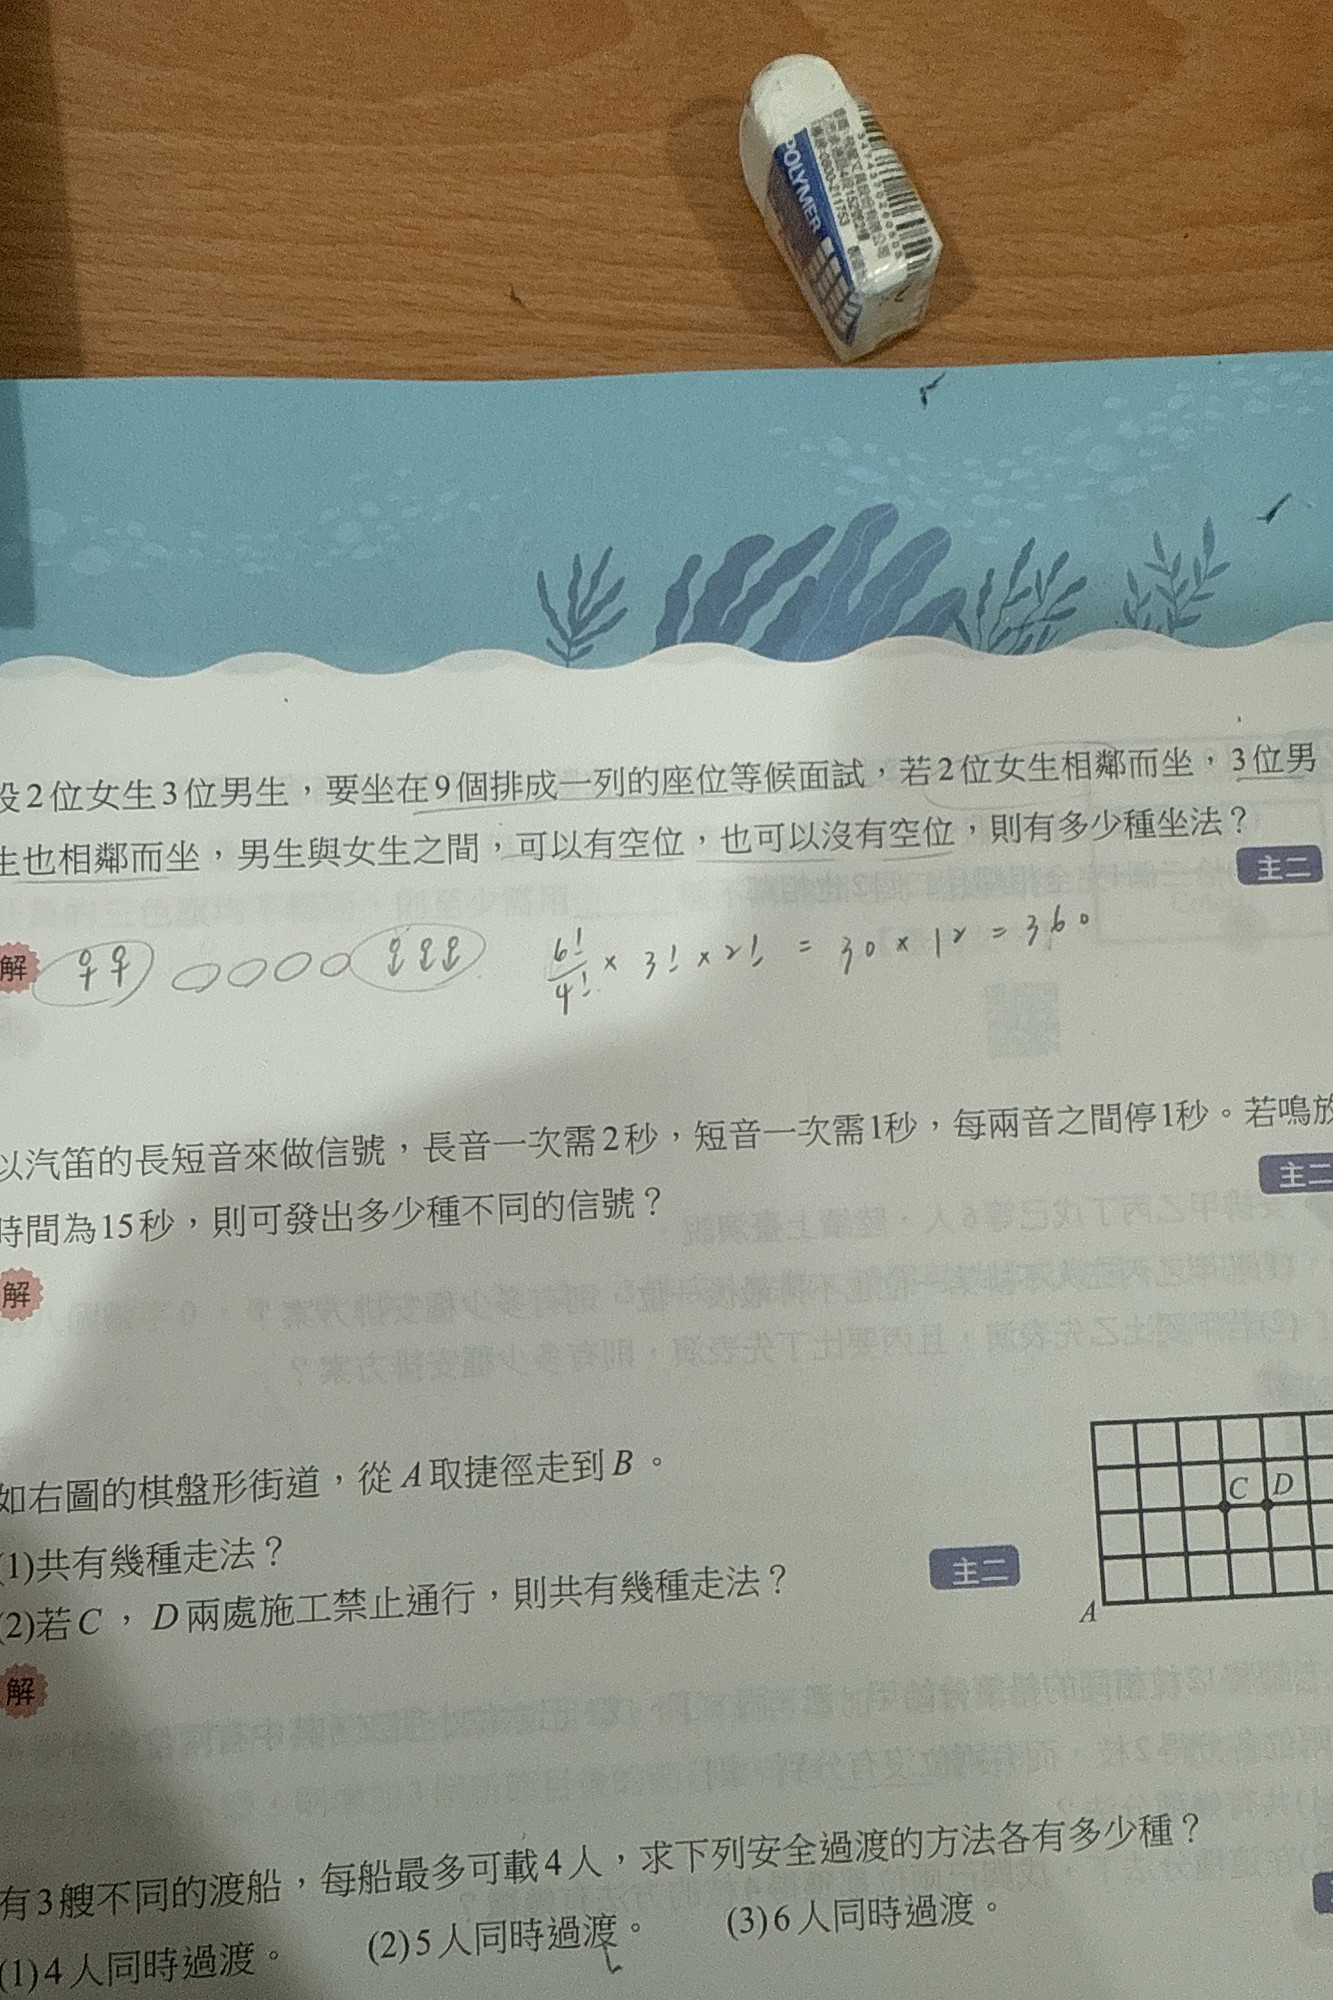 POLYMER
設2位女生3位男生，要坐在9個排成一列的座位等候面試，若2位女生相鄰而坐，3位男
生也相鄰而坐，男生與女生之間，可以有空位，也可以沒有空位，則有多少種坐法？
主二
解
6!/4! × 3! × 2! = 30 × 12 = 360
以汽笛的長短音來做信號，長音一次需2秒，短音一次需1秒，每兩音之間停1秒。若鳴放
時間為15秒，則可發出多少種不同的信號？
主二
解
如右圖的棋盤形街道，從A取捷徑走到B。
(1)共有幾種走法？
(2)若C，D兩處施工禁止通行，則共有幾種走法？
主二
C D
A
解
有3艘不同的渡船，每船最多可載4人，求下列安全過渡的方法各有多少種？
(1)4人同時過渡。 (2)5人同時過渡。 (3)6人同時過渡。